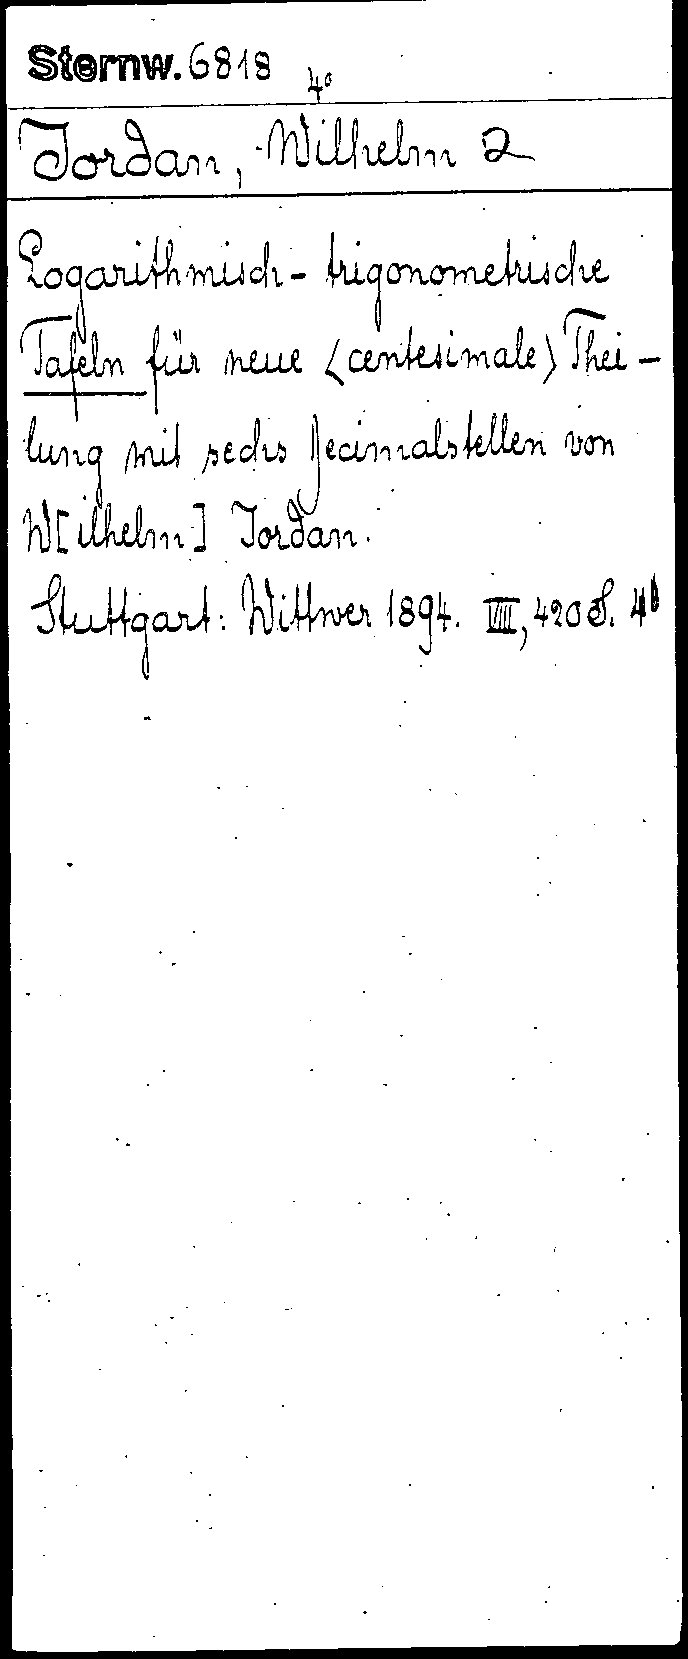 Sternw. 6818 4°
Jordan, Wilhelm 2
Logarithmisch-trigonometrische
Tafeln für neue <centesimale> Thei-
lung mit sechs Decimalstellen von
W[ilhelm] Jordan.
Stuttgart: Wittwer 1894. VIII, 420 S. 4°